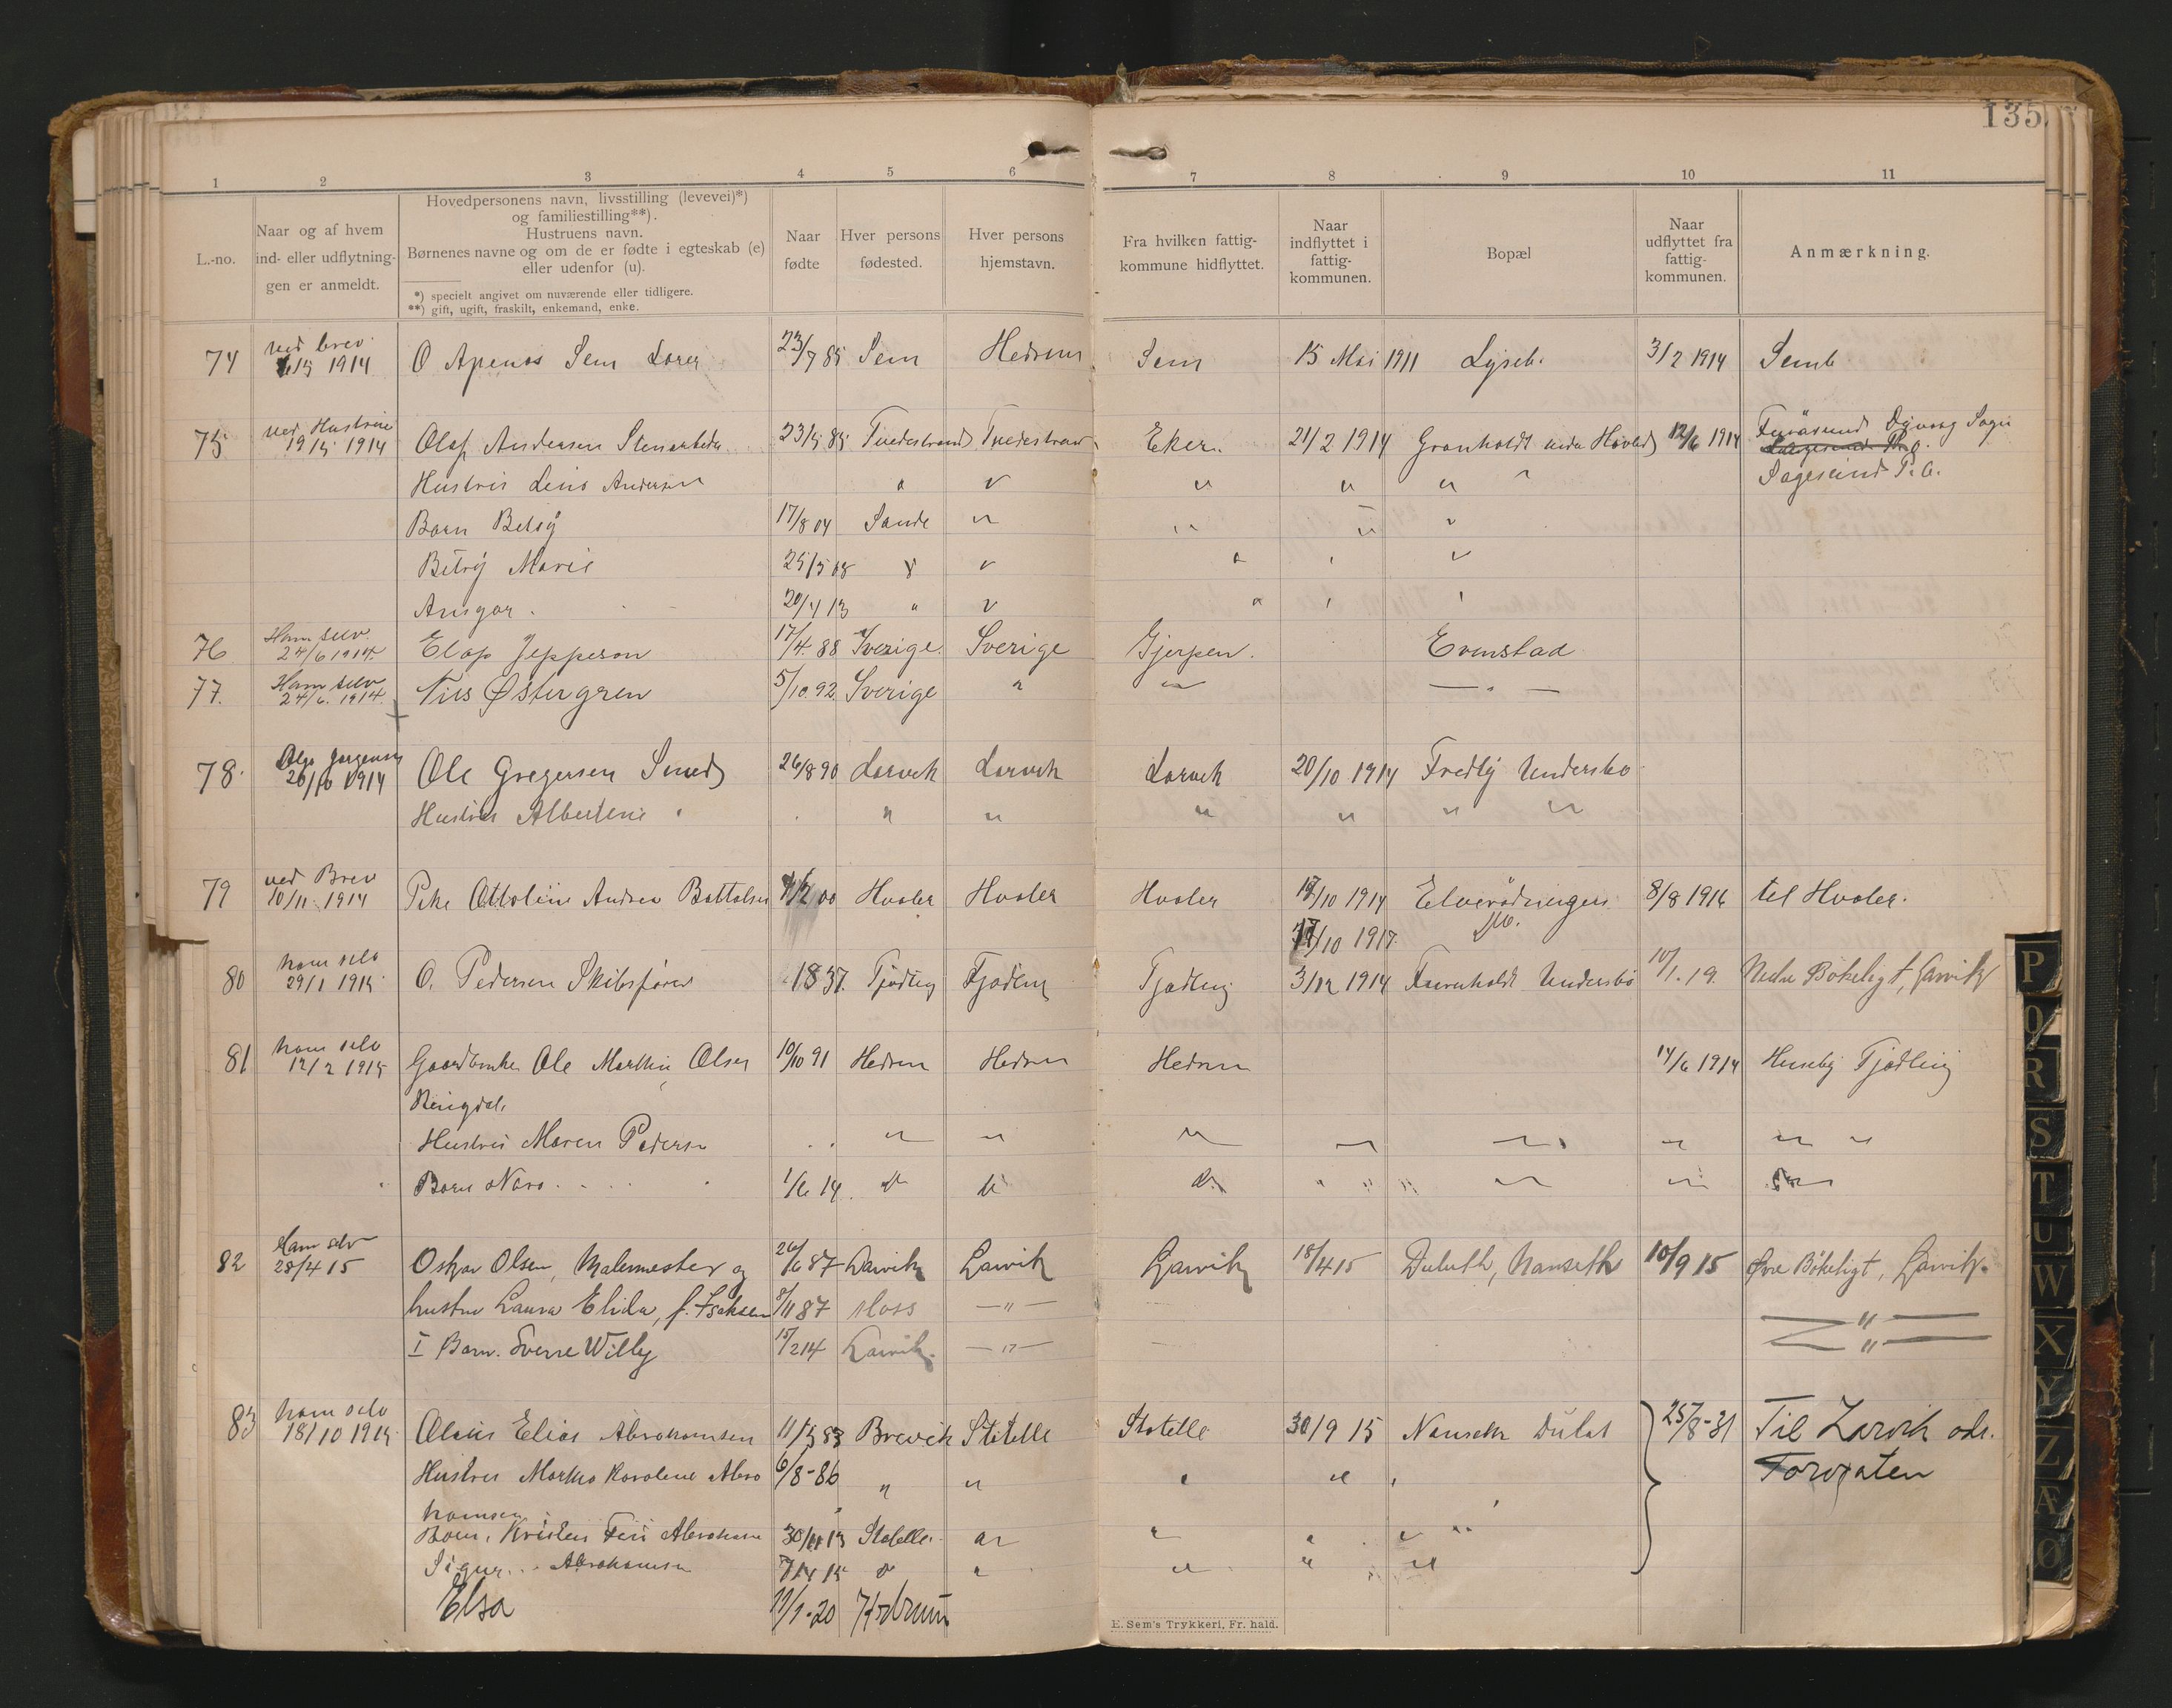 135
1 2 3 4 5 6 7 8 9 10 11
L.-no.
Naar og af hvem
ind- eller udflytnin-
gen er anmeldt.
Hovedpersonens navn, livsstilling (levevei)*)
og familiestilling**).
Hustruens navn.
Børnenes navne og om de er fødte i egteskab (e)
eller udenfor (u).
*) specielt angivet om nuværende eller tidligere.
**) gift, ugift, fraskilt, enkemand, enke.
Naar
fødte
Hver persons
fødested.
Hver persons
hjemstavn.
Fra hvilken fattig-
kommune hidflyttet.
Naar
indflyttet i
fattig-
kommunen.
Bopæl
Naar
udflyttet fra
fattig-
kommunen.
Anmærkning.
ved brev
74 1914 O Apenes Sem 23/7 85 Sem Hedrum Sem 15 Mai 1911 Lyseb. 3/2 1914 Semb
ved Hustruen
75 19/5 1914 Olaf Andersen Stenarbeder 23/5 85 Tvedestrand Tvedestrand Eker 21/2 1914 Granholdt under Hovland 12/6 1914 Dyvaag Sogn
Hustru Lena Andersen " " " " " " Sagesund P. O.
Barn Betsy 17/8 04 Sande " " " "
Betsy Marie 25/5 08 " " " " "
Ansgar. 20/4 13 " " " " "
Ham selv
76 24/6 1914. Elof Jeppeson 17/4. 88 Sverige. Sverige Gjerpen. Evenstad
Ham selv
77. 24/6. 1914. Nils Østergren 5/10. 92 Sverige " " — " —
Jørgensen
78. 20/10 1914 Ole Gregersen Smed 26/8 90 Larvik Larvik Larvik 20/10 1914 Fredly Undersbo
Hustru Albertine " " " " " " "
ved Brev
79 10/11 1914 Pike Ottoline Andrea 00 Hvaler Hvaler Hvaler 17/10 1914 Elverødningen 8/8 1916 til Hvaler.
10 1917.
ham selv
80 29/1 1915 O. Pedersen Skibsfører 1837. Tjødling Tjødling Tjødling 3/12 1914 Undersbo 10/1. 19. Nedre Bøkeligt, Larvik
ham selv
81 12/2 1915 Gaardbruker Ole Martin Olsen 10/10 91 Hedrum Hedrum Hedrum 14/6 1914 Huseby Tjødling
Ringdal.
Hustru Maren Pedersen " " " " " " " "
Barn Nora 1/6 14. " " " " " " " "
Ham selv
82 28/4 15 Oskar Olsen, Malermester og 26/6 87 Larvik Larvik Larvik 18/4 15 Duluth, Nanseth 10/9 15 Øvre Bøkeligt, Larvik.
hustru Laura Elida, f. Isaksen 3/11 87 Moss — " — — " —
I Barn. Sverre Willy 15/2 14 Larvik. — " — — " —
ham selv
83 18/10 1915 Olaus Elias Abrahamsen 11/3 83 Brevik Statelle Statelle 30/9 15 Nanseth Dulut 25/8-31 Til Larvik ads.
Hustru Martha Karoline Abra 6/8-86 " " " " " Torvgaten
hamsen
Barn. Kristen Abrahamsen 30/11 13 Statelle " " " " "
Sigur Abrahamsen 15 " " " " "
Elsa 19/1-20 Hedrum
E. Sem's Trykkeri, Fr. hald.
P
Q
R
S
T
U
W
X
Y
Z
Æ
Ø